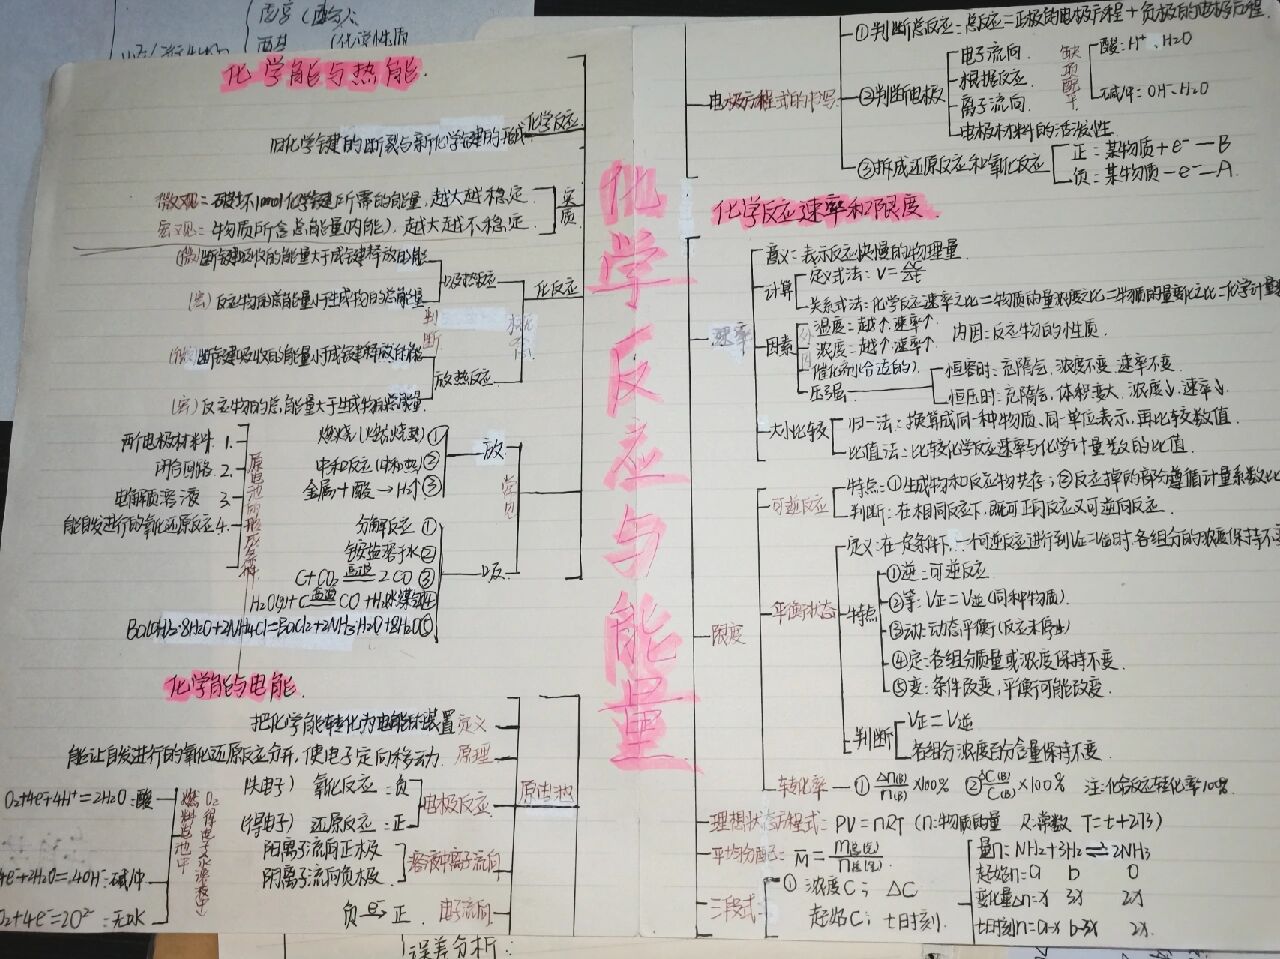 化学能与热能.
化学反应
旧化学键的断裂与新化学键的形成
实质
微观: 破坏1mol化学键所需的能量, 越大越稳定.
宏观: 物质所含总能量(内能), 越大越不稳定.
化反应
吸热反应
(微)断键吸收的能量大于成键释放的能
(宏)反应物的总能量小于生成物的总能量
判断
放热反应
(微)断键吸收的能量小于成键释放的能
(宏)反应物的总能量大于生成物总能量
常见
放
燃烧 ①
中和反应(中和热)②
金属+酸→H₂↑ ③
吸
分解反应 ①
铵盐溶于水②
C+CO₂ 高温 2CO ③
H₂O(g)+C 高温 CO+H₂水煤气④
Ba(OH)₂·8H₂O+2NH₄Cl=BaCl₂+2NH₃·H₂O+8H₂O⑤
原电池的形成条件
两个电极材料. 1.
闭合回路. 2.
电解质溶液 3.
能自发进行的氧化还原反应.4.
化学能与电能.
原电池
把化学能转化为电能的装置 定义
能让自发进行的氧化还原反应分开, 使电子定向移动. 原理
电极反应
(失电子) 氧化反应 =负
(得电子) 还原反应 =正
溶液中离子流向
阳离子流向正极
阴离子流向负极
负 e⁻→ 正. 电子流向
O₂+4e⁻+4H⁺=2H₂O :酸
4e⁻+2H₂O=4OH⁻:碱/中
O₂+4e⁻=2O²⁻ :无水
误差分析:
化学反应与能量
电极方程式的书写
①判断总反应: 总反应=正极的电极方程+负极的电极方程.
②判断电极
电子流向.
根据反应.
离子流向.
电极材料的活泼性.
酸: H⁺、H₂O
碱/中: OH⁻、H₂O
③拆成还原反应和氧化反应
正: 某物质+e⁻—B
负: 某物质-e⁻—A
化学反应速率和限度.
速率
意义: 表示反应快慢的物理量
计算
定义式法: V=Δc/Δt
关系式法: 化学反应速率之比=物质的量浓度之比=物质的量变化之比=化学计量数
因素
温度: 越↑, 速率↑
浓度: 越↑, 速率↑
催化剂(合适的).
压强
内因: 反应物的性质.
恒容时: 充惰气, 浓度不变, 速率不变.
恒压时: 充惰气, 体积变大, 浓度↓, 速率↓.
大小比较
归一法: 换算成同一种物质、同一单位表示, 再比较数值.
比值法: 比较化学反应速率与化学计量数的比值.
限度
可逆反应
特点: ①生成物和反应物共存; ②反应掉的部分遵循计量系数比
判断: 在相同反应下, 既可正向反应又可逆向反应.
平衡状态
定义: 在一定条件下, 一可逆反应进行到V正=V逆时, 各组分的浓度保持不变
特点
①逆: 可逆反应.
②等: V正=V逆(同种物质).
③动: 动态平衡(反应未停止)
④定: 各组分质量或浓度保持不变.
⑤变: 条件改变, 平衡可能改变.
判断
V正=V逆
各组分浓度百分含量保持不变.
转化率 ① Δn(B)/n(B)×100% ②ΔC(B)/C(B)×100% 注: 化合反应转化率100%.
理想状态方程式: PV=nRT (n:物质的量 R:常数 T=t+273)
平均分配: M̄=m总/n总
三段式
① 浓度C; ΔC
起始C; t时刻.
量n: N₂+3H₂⇌2NH₃
起始n=a b 0
变化量Δn=x 3x 2x
t时刻n=a-x b-3x 2x